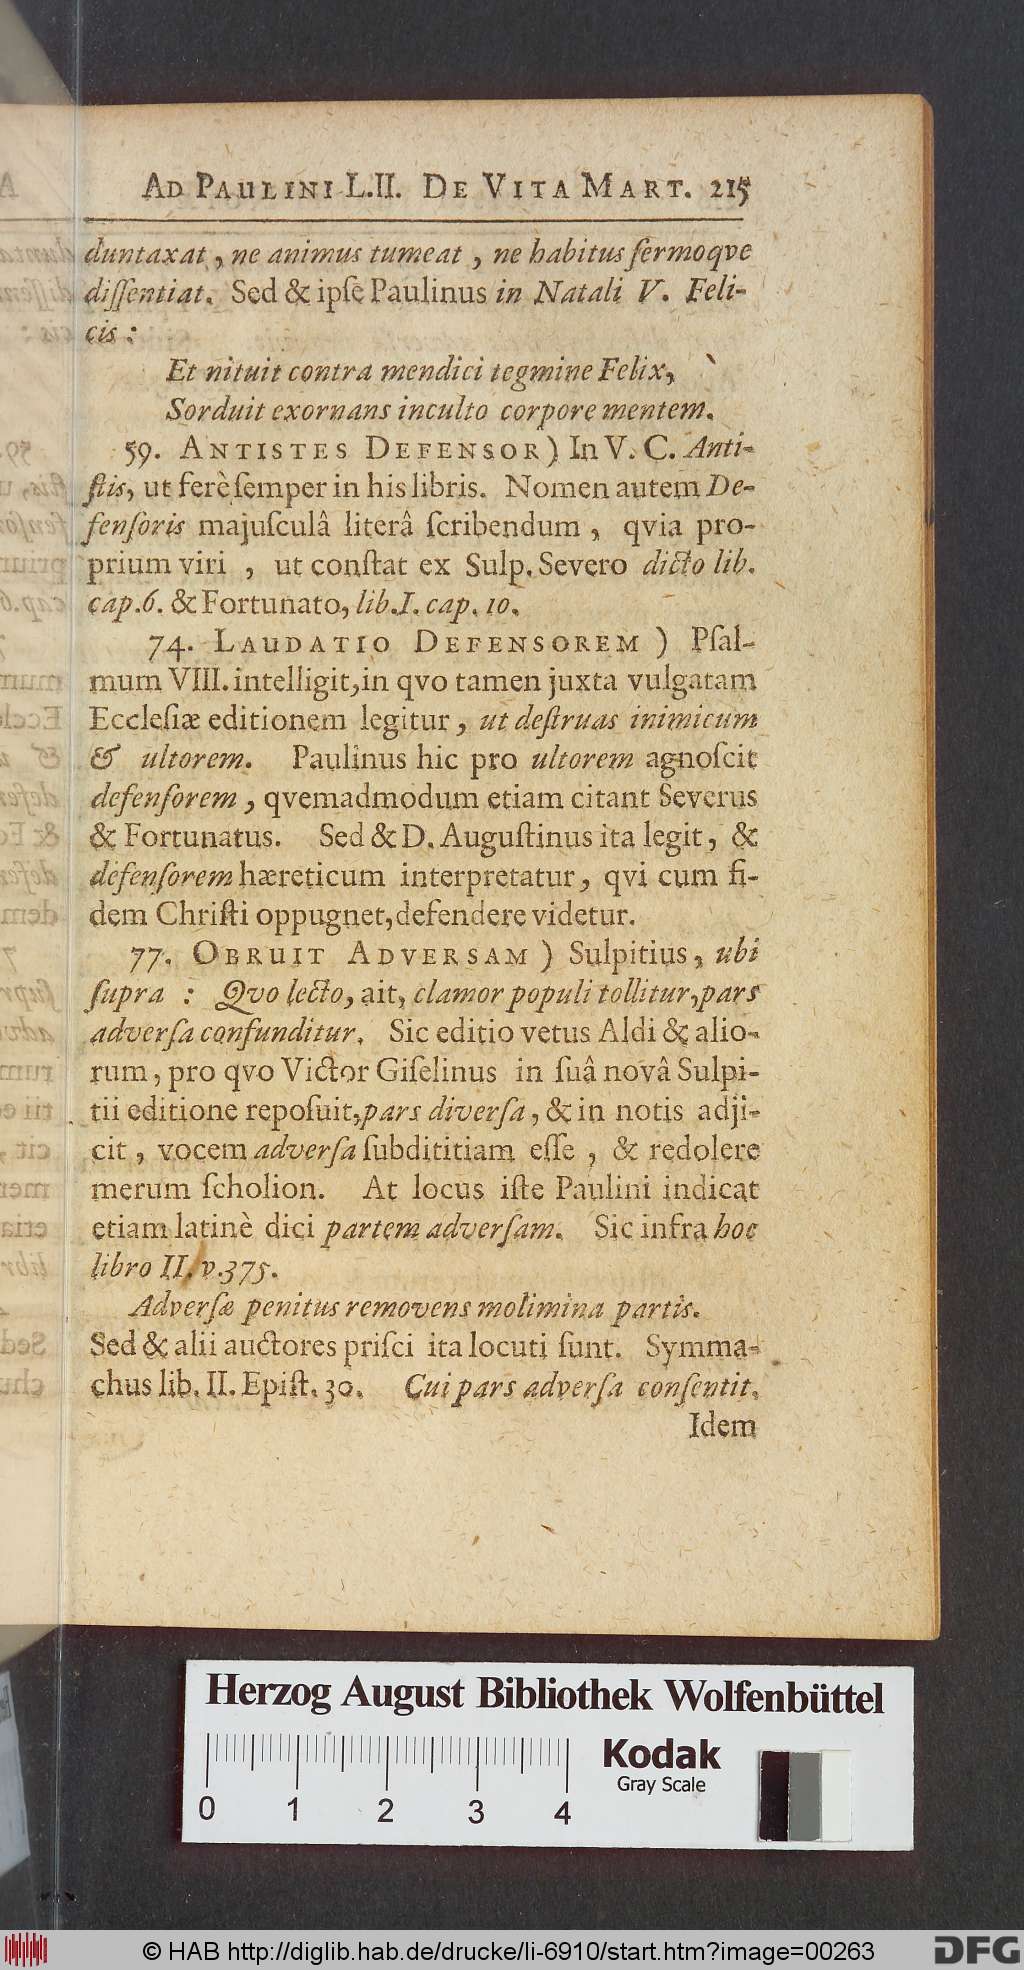 AD PAULINI L.II. DE VITA MART. 215
duntaxat, ne animus tumeat, ne habitus ſermoqve
diſſentiat. Sed & ipſe Paulinus in Natali V. Feli-
cis:
Et nituit contra mendici tegmine Felix,
Sorduit exornans inculto corpore mentem.
59. ANTISTES DEFENSOR) In V. C. Anti-
ſtis, ut ferè ſemper in his libris. Nomen autem De-
fenſoris majuſculâ literâ ſcribendum, qvia pro-
prium viri, ut conſtat ex Sulp. Severo dicto lib.
cap.6. & Fortunato, lib.I. cap. 10.
74. LAUDATIO DEFENSOREM) Pſal-
mum VIII. intelligit, in qvo tamen juxta vulgatam
Eccleſiæ editionem legitur, ut deſtruas inimicum
& ultorem. Paulinus hic pro ultorem agnoſcit
defenſorem, qvemadmodum etiam citant Severus
& Fortunatus. Sed & D. Auguſtinus ita legit, &
defenſorem hæreticum interpretatur, qvi cum fi-
dem Chriſti oppugnet, defendere videtur.
77. OBRUIT ADVERSAM) Sulpitius, ubi
ſupra: Qvo lecto, ait, clamor populi tollitur, pars
adverſa confunditur. Sic editio vetus Aldi & alio-
rum, pro qvo Victor Giſelinus in ſuâ novâ Sulpi-
tii editione repoſuit, pars diverſa, & in notis adji-
cit, vocem adverſa ſubdititiam eſſe, & redolere
merum ſcholion. At locus iſte Paulini indicat
etiam latinè dici partem adverſam. Sic infra hoc
libro II. v.375.
Adverſæ penitus removens molimina partis.
Sed & alii auctores priſci ita locuti ſunt. Symma-
chus lib. II. Epiſt. 30. Cui pars adverſa conſentit.
Idem
Herzog August Bibliothek Wolfenbüttel
Kodak
Gray Scale
0 1 2 3 4
© HAB http://diglib.hab.de/drucke/li-6910/start.htm?image=00263
DFG